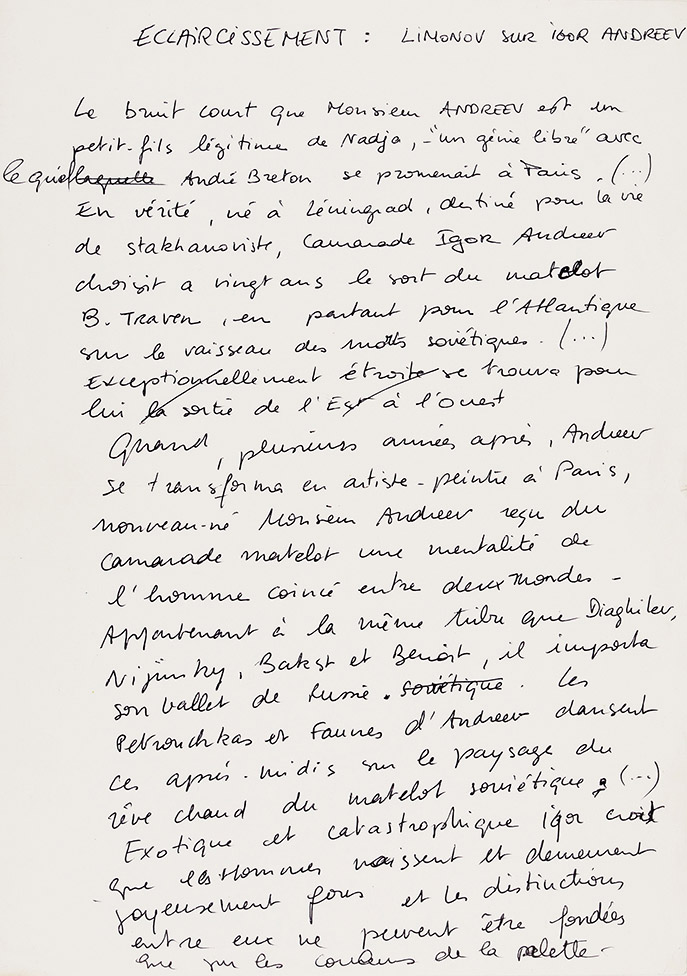 ECLAIRCISSEMENT : LIMONOV SUR IGOR ANDREEV
Le bruit court que Monsieur ANDREEV est un
petit-fils légitime de Nadja, -"un génie libre" avec
lequel laquelle André Breton se promenait à Paris. (...)
En vérité, né à Léningrad, destiné pour la vie
de stakhanoviste, Camarade Igor Andreev
choisit a vingt ans le sort du matelot
B. Traven, en partant pour l'Atlantique
sur le vaisseau des mots soviétiques. (...)
Exceptionnellement étroite se trouva pour
lui la sortie de l'Est à l'Ouest
Quand, plusieurs années après, Andreev
se transforma en artiste-peintre à Paris,
nouveau-né Monsieur Andreev reçu du
Camarade matelot une mentalité de
l'homme coincé entre deux Mondes -
Appartenant à la même tribu que Diaghilev,
Nijinsky, Bakst et Benoit, il importa
son ballet de Russie. soviétique. Les
Petrouchkas et Faunes d'Andreev dansent
ces après-midis sur le paysage du
rêve chaud du matelot soviétique, (...)
Exotique et catastrophique Igor croit
que les Hommes naissent et demeurent
joyeusement fous et les distinctions
entre eux ne peuvent être fondées
que sur les couleurs de la palette-